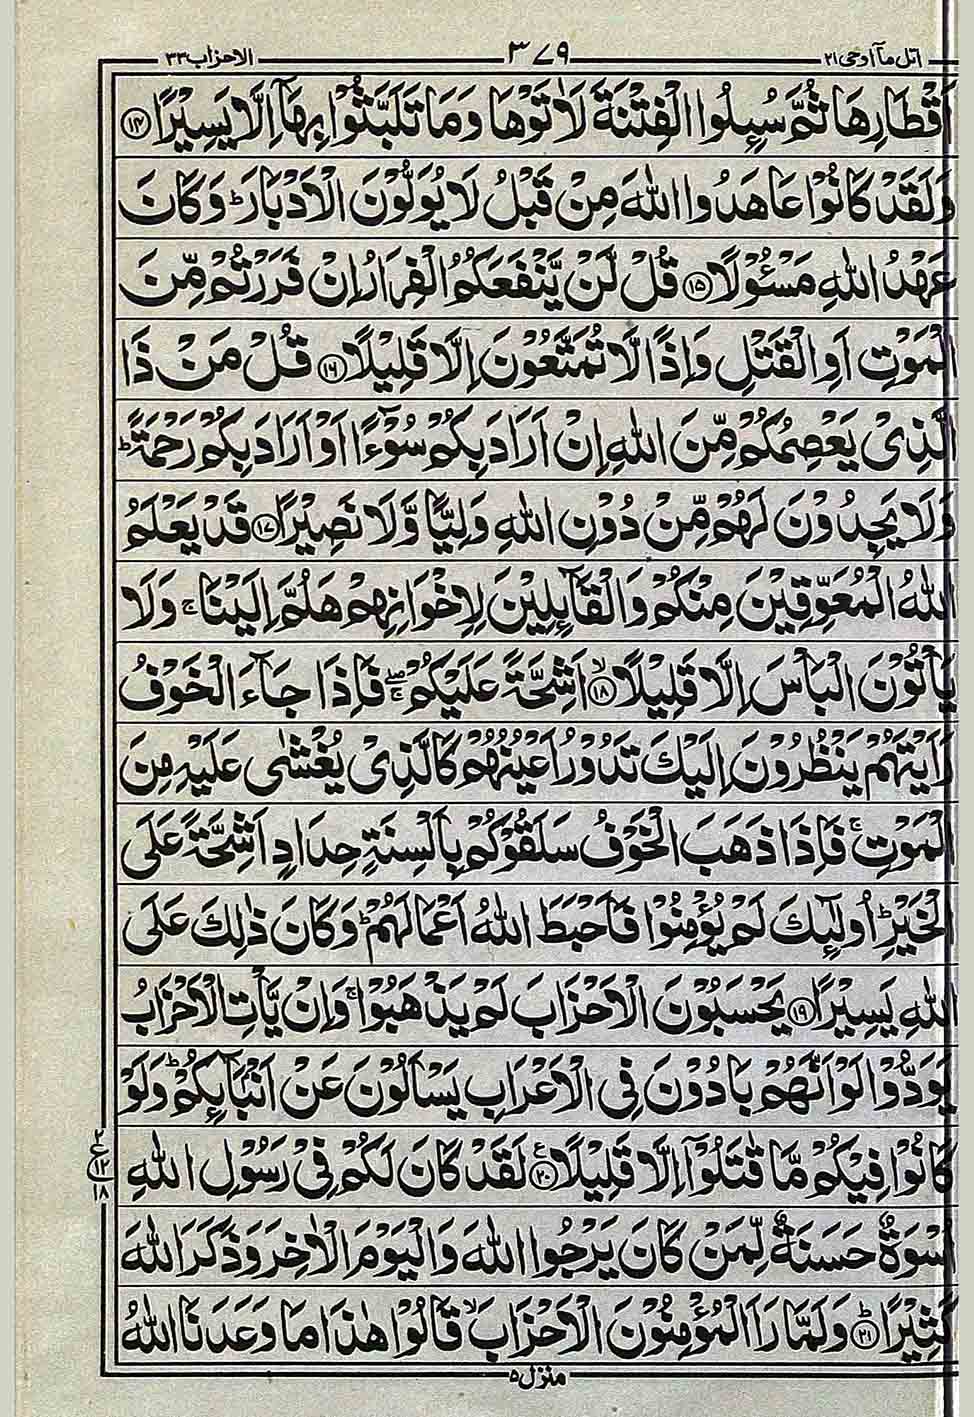 اتل مآ اوحی ۲۱ ۳۷۹ الاحزاب ۳۳
اَقْطَارِهَا ثُمَّ سُىِٕلُوا الْفِتْنَةَ لَاٰتَوْهَا وَمَا تَلَبَّثُوْا بِهَاۤ اِلَّا یَسِیْرًا ۱۴
وَلَقَدْ كَانُوْا عَاهَدُوا اللّٰهَ مِنْ قَبْلُ لَا یُوَلُّوْنَ الْاَدْبَارَ ؕ وَكَانَ
عَهْدُ اللّٰهِ مَسْـُٔوْلًا ۱۵ قُلْ لَّنْ یَّنْفَعَكُمُ الْفِرَارُ اِنْ فَرَرْتُمْ مِّنَ
الْمَوْتِ اَوِ الْقَتْلِ وَاِذًا لَّا تُمَتَّعُوْنَ اِلَّا قَلِیْلًا ۱۶ قُلْ مَنْ ذَا
الَّذِیْ یَعْصِمُكُمْ مِّنَ اللّٰهِ اِنْ اَرَادَ بِكُمْ سُوْٓءًا اَوْ اَرَادَ بِكُمْ رَحْمَةً ؕ
وَلَا یَجِدُوْنَ لَهُمْ مِّنْ دُوْنِ اللّٰهِ وَلِیًّا وَّلَا نَصِیْرًا ۱۷ قَدْ یَعْلَمُ
اللّٰهُ الْمُعَوِّقِیْنَ مِنْكُمْ وَالْقَآىِٕلِیْنَ لِاِخْوَانِهِمْ هَلُمَّ اِلَیْنَا ۚ وَلَا
یَاْتُوْنَ الْبَاْسَ اِلَّا قَلِیْلًا ۙ ۱۸ اَشِحَّةً عَلَیْكُمْ ۖۚ فَاِذَا جَآءَ الْخَوْفُ
رَاَیْتَهُمْ یَنْظُرُوْنَ اِلَیْكَ تَدُوْرُ اَعْیُنُهُمْ كَالَّذِیْ یُغْشٰی عَلَیْهِ مِنَ
الْمَوْتِ ۚ فَاِذَا ذَهَبَ الْخَوْفُ سَلَقُوْكُمْ بِاَلْسِنَةٍ حِدَادٍ اَشِحَّةً عَلَی
الْخَیْرِ ؕ اُولٰٓىِٕكَ لَمْ یُؤْمِنُوْا فَاَحْبَطَ اللّٰهُ اَعْمَالَهُمْ ؕ وَكَانَ ذٰلِكَ عَلَی
اللّٰهِ یَسِیْرًا ۱۹ یَحْسَبُوْنَ الْاَحْزَابَ لَمْ یَذْهَبُوْا ۚ وَاِنْ یَّاْتِ الْاَحْزَابُ
یَوَدُّوْا لَوْ اَنَّهُمْ بَادُوْنَ فِی الْاَعْرَابِ یَسْاَلُوْنَ عَنْ اَنْۢبَآىِٕكُمْ ؕ وَلَوْ
كَانُوْا فِیْكُمْ مَّا قٰتَلُوْۤا اِلَّا قَلِیْلًا ۲۰ ع لَقَدْ كَانَ لَكُمْ فِیْ رَسُوْلِ اللّٰهِ
۲ ع ۱۲ ۱۸
اُسْوَةٌ حَسَنَةٌ لِّمَنْ كَانَ یَرْجُوا اللّٰهَ وَالْیَوْمَ الْاٰخِرَ وَذَكَرَ اللّٰهَ
كَثِیْرًا ؕ ۲۱ وَلَمَّا رَاَ الْمُؤْمِنُوْنَ الْاَحْزَابَ ۙ قَالُوْا هٰذَا مَا وَعَدَنَا اللّٰهُ
منزل ۵